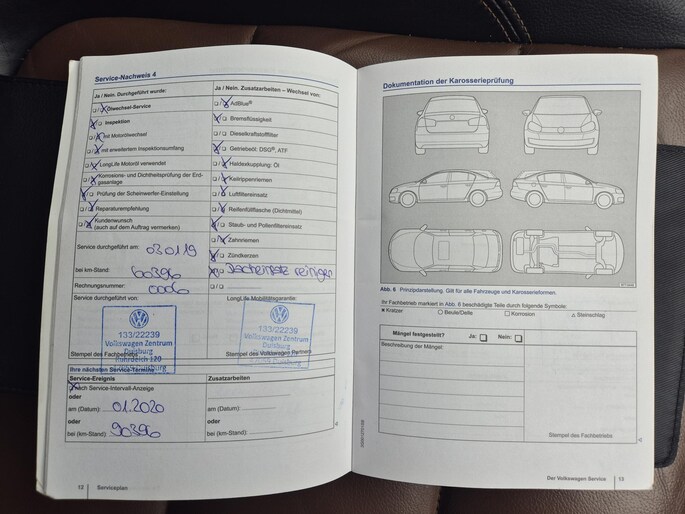 Service-Nachweis 4
Ja / Nein. Durchgeführt wurde:
Ölwechsel-Service
Inspektion
mit Motorölwechsel
mit erweitertem Inspektionsumfang
LongLife Motoröl verwendet
Korrosions- und Dichtheitsprüfung der Erd-
gasanlage
Prüfung der Scheinwerfer-Einstellung
Reparaturempfehlung
Kundenwunsch
(auch auf dem Auftrag vermerken)
Service durchgeführt am: 03.01.19
bei km-Stand: 60396
Rechnungsnummer: 0006
Service durchgeführt von:
133/22239
Volkswagen Zentrum
Duisburg
Stempel des Fachbetriebs
Ja / Nein. Zusatzarbeiten – Wechsel von:
AdBlue®
Bremsflüssigkeit
Dieselkraftstofffilter
Getriebeöl: DSG®, ATF
Haldexkupplung: Öl
Keilrippenriemen
Luftfiltereinsatz
Reifenfüllflasche (Dichtmittel)
Staub- und Pollenfiltereinsatz
Zahnriemen
Zündkerzen
Dacheinsatz reinigen
LongLife Mobilitätsgarantie:
133/22239
Volkswagen Zentrum
Duisburg
Stempel des Volkswagen Partners
Ihre nächsten Service-Termine
Service-Ereignis
nach Service-Intervall-Anzeige
oder
am (Datum): 01.2020
oder
bei (km-Stand): 90396
Zusatzarbeiten
am (Datum):
oder
bei (km-Stand):
12 Serviceplan
Dokumentation der Karosserieprüfung
Abb. 6 Prinzipdarstellung. Gilt für alle Fahrzeuge und Karosserieformen.
Ihr Fachbetrieb markiert in Abb. 6 beschädigte Teile durch folgende Symbole:
× Kratzer ○ Beule/Delle □ Korrosion △ Steinschlag
Mängel festgestellt? Ja: Nein:
Beschreibung der Mängel:
Stempel des Fachbetriebs
Der Volkswagen Service 13